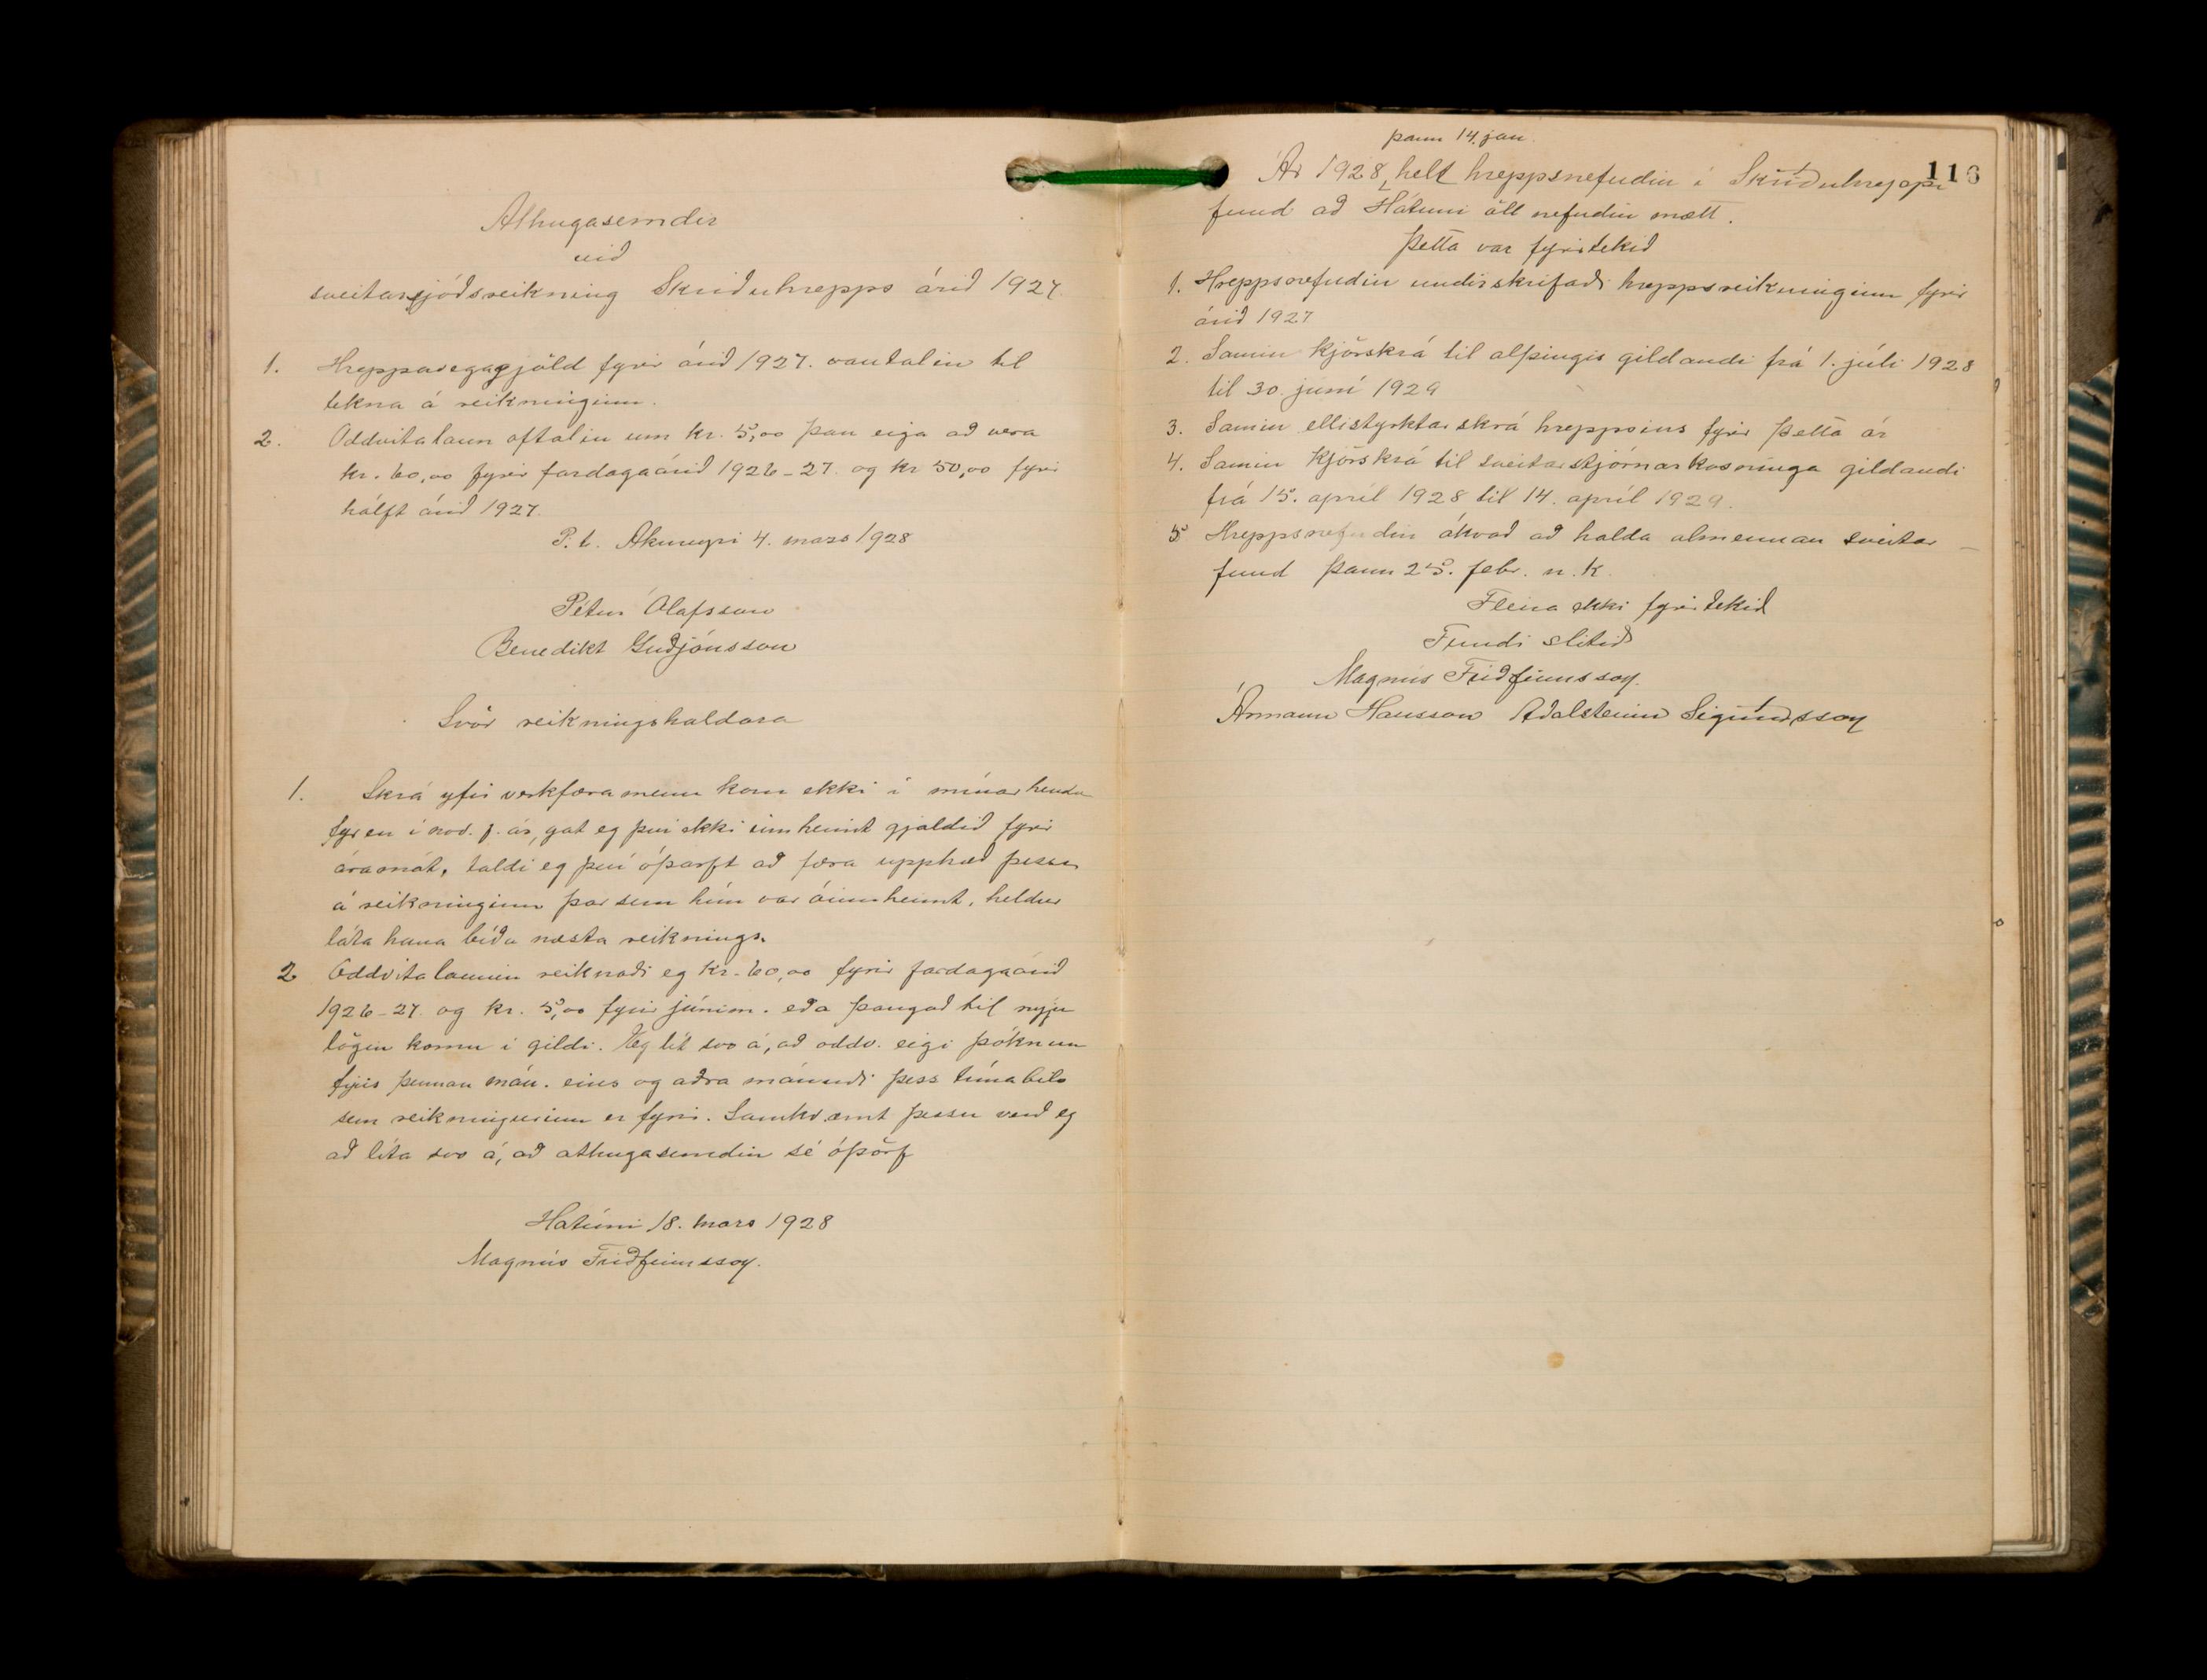 Athugasemdir
við
sveitarsjóðsreikning Skriðuhrepps árið 1927.
1. Hreppavegagjöld fyrir árið 1927. vantalin til
tekna á reikninginn.
2. Oddvitalaun oftalin um kr. 5,00 þau eiga að vera
kr. 60,00 fyrir fardagaárið 1926-27. og kr 50,00 fyrir
hálft árið 1927.
P.t. Akureyri 4. mars 1928
Pétur Ólafsson
Benedikt Guðjónsson
Svör reikningshaldara
1. Skrá yfir verkfæramenn kom ekki í mínar hendur
fyr en í nóv. f. ár, gat eg því ekki innheimt gjaldið fyrir
áramót, taldi eg því óþarft að færa upphæð þessa
á reikninginn þar sem hún var óinnheimt, heldur
láta hana bíða næsta reiknings.
2 Oddvitalaunin reiknaði eg kr. 60,00 fyrir fardagaárið
1926-27. og kr. 5,00 fyrir júním. eða þangað til nýju
lögin komu í gildi. Eg lít svo á, að oddv. eigi þóknun
fyrir þennan mán. eins og aðra mánuði þess tímabils
sem reikningurinn er fyrir. Samkvæmt þessu verð eg
að líta svo á, að athugasemdin sé óþörf
Hátúni 18. mars 1928
Magnús Friðfinnsson.
116
þann 14. jan.
Ár 1928, helt hreppsnefndin í Skriðuhreppi
fund að Hátúni öll nefndin mætt.
Þetta var fyrirtekið
1. Hreppsnefndin undirskrifaði hreppsreikninginn fyrir
árið 1927
2. Samin kjörskrá til alþingis gildandi frá 1. júli 1928
til 30. juní 1929
3. Samin ellistyrktarskrá hreppsins fyrir þetta ár
4. Samin kjörskrá til sveitarstjórnarkosninga gildandi
frá 15. apríl 1928 til 14. apríl 1929.
5 Hreppsnefndin ákvað að halda almennan sveitar-
fund þann 25. febr. n.k.
Fleira ekki fyrirtekið
Fundi slitið
Magnús Friðfinnsson.
Ármann Hansson Aðalsteinn Sigurðsson